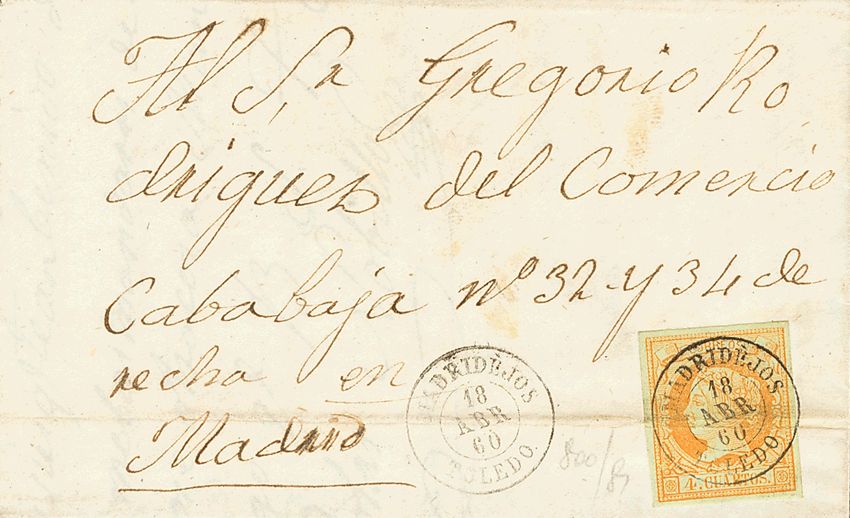 Al Sr Gregorio Ro
driguez del Comercio
Cababaja nº 32 y 34 de
recha en
Madrid
MADRIDEJOS
18
ABR
60
TOLEDO.
MADRIDEJOS
18
ABR
60
TOLEDO.
4 CUARTOS.
800/